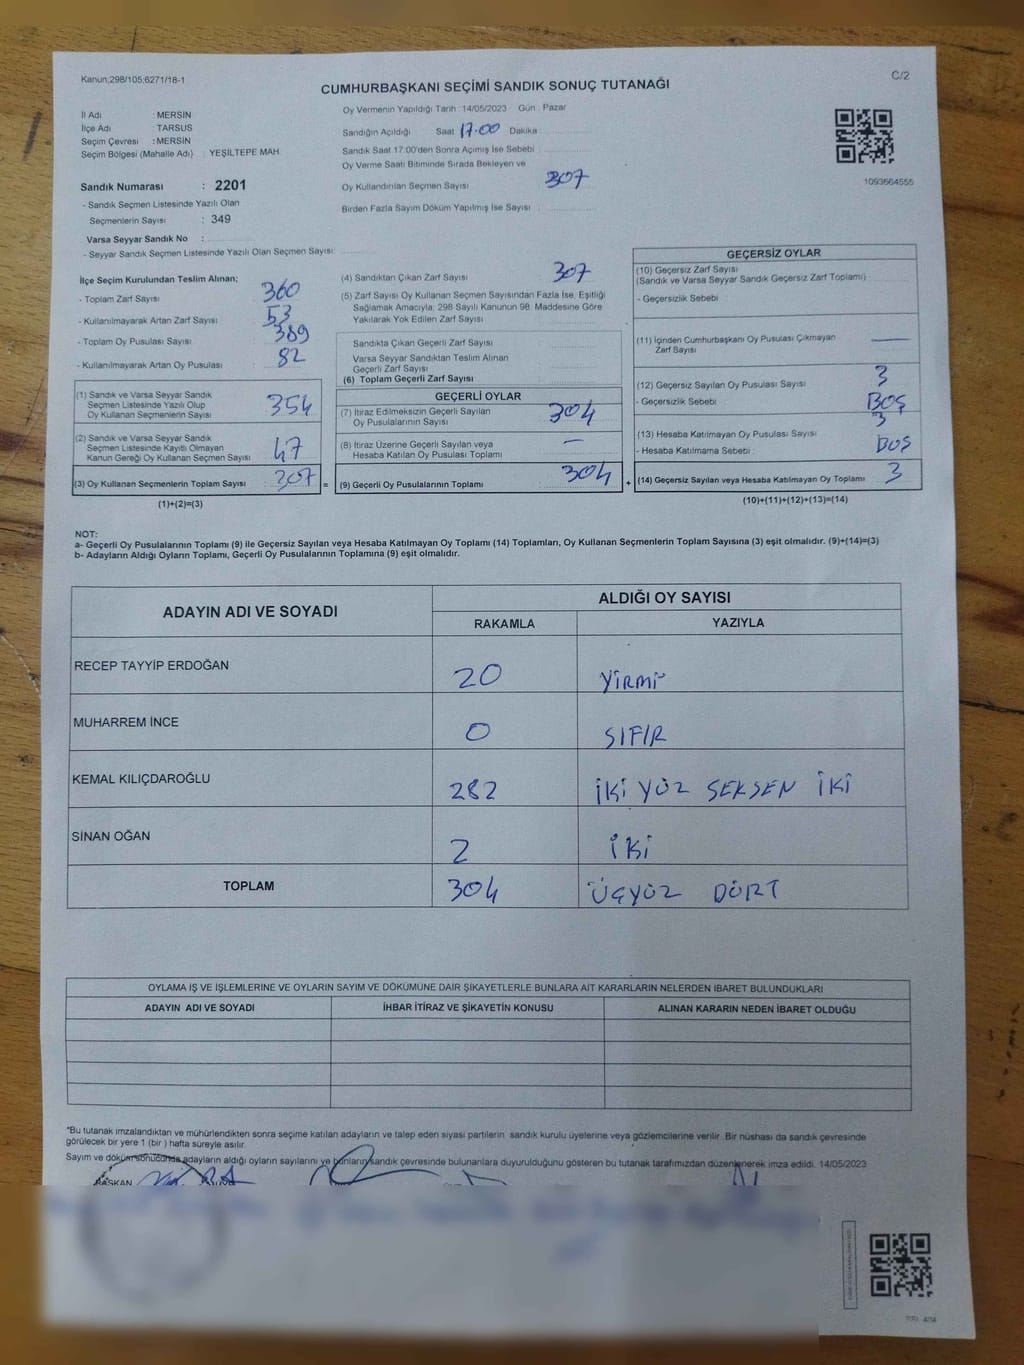 Kanun;298/105;6271/18-1
C/2
CUMHURBAŞKANI SEÇİMİ SANDIK SONUÇ TUTANAĞI
İl Adı : MERSİN
İlçe Adı : TARSUS
Seçim Çevresi : MERSİN
Seçim Bölgesi (Mahalle Adı) : YEŞİLTEPE MAH.
Sandık Numarası : 2201
- Sandık Seçmen Listesinde Yazılı Olan
Seçmenlerin Sayısı : 349
Varsa Seyyar Sandık No :
- Seyyar Sandık Seçmen Listesinde Yazılı Olan Seçmen Sayısı:
Oy Vermenin Yapıldığı Tarih : 14/05/2023 Gün : Pazar
Sandığın Açıldığı Saat 17.00 Dakika
Sandık Saat 17:00'den Sonra Açımış İse Sebebi :
Oy Verme Saati Bitiminde Sırada Bekleyen ve
Oy Kullandırılan Seçmen Sayısı 307
Birden Fazla Sayım Döküm Yapılmış İse Sayısı :
1093664555
İlçe Seçim Kurulundan Teslim Alınan;
- Toplam Zarf Sayısı 360
- Kullanılmayarak Artan Zarf Sayısı 53
- Toplam Oy Pusulası Sayısı 389
- Kullanılmayarak Artan Oy Pusulası 82
(1) Sandık ve Varsa Seyyar Sandık
Seçmen Listesinde Yazılı Olup
Oy Kullanan Seçmenlerin Sayısı 354
(2) Sandık ve Varsa Seyyar Sandık
Seçmen Listesinde Kayıtlı Olmayan
Kanun Gereği Oy Kullanan Seçmen Sayısı 47
(3) Oy Kullanan Seçmenlerin Toplam Sayısı 307 =
(1)+(2)=(3)
(4) Sandıktan Çıkan Zarf Sayısı 307
(5) Zarf Sayısı Oy Kullanan Seçmen Sayısından Fazla İse, Eşitliği
Sağlamak Amacıyla, 298 Sayılı Kanunun 98. Maddesine Göre
Yakılarak Yok Edilen Zarf Sayısı :
Sandıkta Çıkan Geçerli Zarf Sayısı :
Varsa Seyyar Sandıktan Teslim Alınan
Geçerli Zarf Sayısı :
(6) Toplam Geçerli Zarf Sayısı :
GEÇERLİ OYLAR
(7) İtiraz Edilmeksizin Geçerli Sayılan
Oy Pusulasının Sayısı 304
(8) İtiraz Üzerine Geçerli Sayılan veya
Hesaba Katılan Oy Pusulası Toplamı —
(9) Geçerli Oy Pusulalarının Toplamı 304 +
GEÇERSİZ OYLAR
(10) Geçersiz Zarf Sayısı
(Sandık ve Varsa Seyyar Sandık Geçersiz Zarf Toplamı)
- Geçersizlik Sebebi :
(11) İçinden Cumhurbaşkanı Oy Pusulası Çıkmayan
Zarf Sayısı —
(12) Geçersiz Sayılan Oy Pusulası Sayısı 3
- Geçersizlik Sebebi : BOŞ
(13) Hesaba Katılmayan Oy Pusulası Sayısı 3
- Hesaba Katılmama Sebebi : BOŞ
(14) Geçersiz Sayılan veya Hesaba Katılmayan Oy Toplamı 3
(10)+(11)+(12)+(13)=(14)
NOT:
a- Geçerli Oy Pusulalarının Toplamı (9) ile Geçersiz Sayılan veya Hesaba Katılmayan Oy Toplamı (14) Toplamları, Oy Kullanan Seçmenlerin Toplam Sayısına (3) eşit olmalıdır. (9)+(14)=(3)
b- Adayların Aldığı Oyların Toplamı, Geçerli Oy Pusulalarının Toplamına (9) eşit olmalıdır.
ADAYIN ADI VE SOYADI
ALDIĞI OY SAYISI
RAKAMLA YAZIYLA
RECEP TAYYİP ERDOĞAN 20 YİRMİ
MUHARREM İNCE 0 SIFIR
KEMAL KILIÇDAROĞLU 282 İKİ YÜZ SEKSEN İKİ
SİNAN OĞAN 2 İKİ
TOPLAM 304 ÜÇYÜZ DÖRT
OYLAMA İŞ VE İŞLEMLERİNE VE OYLARIN SAYIM VE DÖKÜMÜNE DAİR ŞİKAYETLERLE BUNLARA AİT KARARLARIN NELERDEN İBARET BULUNDUKLARI
ADAYIN ADI VE SOYADI İHBAR İTİRAZ VE ŞİKAYETİN KONUSU ALINAN KARARIN NEDEN İBARET OLDUĞU
*Bu tutanak imzalandıktan ve mühürlendikten sonra seçime katılan adayların ve talep eden siyasi partilerin sandık kurulu üyelerine veya gözlemcilerine verilir. Bir nüshası da sandık çevresinde
görülecek bir yere 1 (bir ) hafta süreyle asılır.
Sayım ve döküm sonucunda adayların aldığı oyların sayılarını ve bunların sandık çevresinde bulunanlara duyurulduğunu gösteren bu tutanak tarafımızdan düzenlenerek imza edildi. 14/05/2023
BAŞKAN